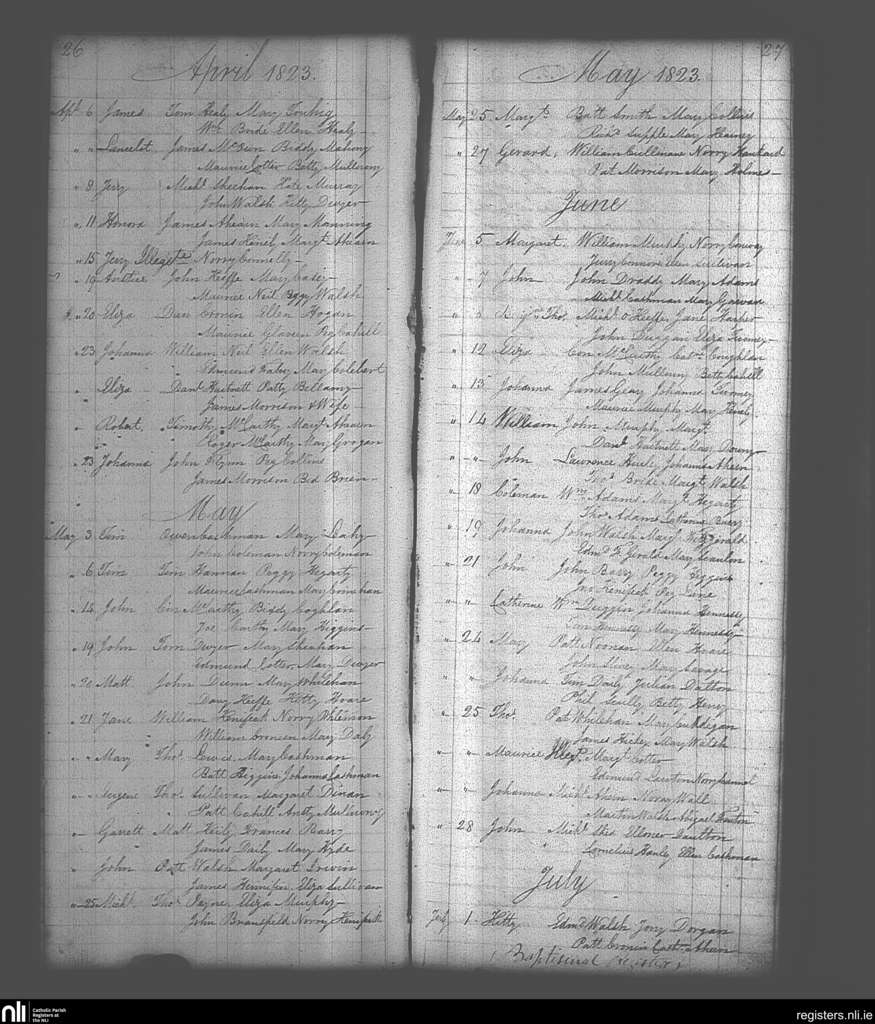 26
April 1823.
Apl. 6 James Tom Healy Mary Touhig
Wm. Bride Ellen Healy
" " Lancelot James McGun Biddy Mahony
Maurice Cotter Betty Mullowny
" 9 Jerry Michl. Sheehan Kate Murray
John Walsh Kitty Dwyer
" 11 Honora James Ahearn Mary Manning
James Margt. Ahearn
" 15 Jerry Illegite. Norry Connelly
" 19 John Keeffe Mary Case
Maurice Neil Peggy Walsh
" 20 Eliza Dan Cronin Ellen Hogan
Maurice Peg Cahill
" 23 Johanna William Neil Ellen Walsh
Mary
" Eliza Danl. Hartnett Patty Bellamy
James Morrison & Wife
" Robert Timothy McCarthy Margt. Ahearn
McCarthy Mary Grogan
" 23 Johanna John Flynn Peg Collins
James Morrison Bid Brien
May
May 3 Tim Owen Cashman Mary Leahy
John Coleman Norry Coleman
" 6 Tim Tim Hannan Peggy Hegarty
Maurice Cashman Mary
" 14 John Con McCarthy Biddy Coghlan
Joe Carthy Mary Higgins
" 19 John Tom Dwyer Mary Sheehan
Edmund Cotter Mary Dwyer
" 20 Matt John Dunn Mary Whilehan
Davy Keeffe Kitty Hoare
" 21 Jane William Kenifeck Norry
William Croneen Mary Daly
" " Mary Thos. Lewis Mary Cashman
Batt Higgins Johanna Cashman
" Eugene Thos. Sullivan Margaret Dinan
Patt Cahill Ansty Mullowny
" Garrett Matt Frances Barry
James Daily Mary Hyde
" John Patt Walsh Margaret Irwin
James Eliza Sullivan
" 25 Michl. Thos. Payne Eliza Murphy
John Bransfield Norry Kenifeck
27
May 1823.
May 25 Margt. Batt Smith Mary Collins
Richd. Supple Mary Heaney
" 27 Gerard William Cullinane Norry Hankard
Pat Morrison Mary Holmes
June
June 5 Margaret William Murphy Norry
Jerry Connors Ellen Sullivan
" 7 John John Draddy Mary Adams
Michl. Cashman Mary Garvan
" Thos. Michl. O'Keeffe Jane
John Duggan Eliza
" 12 Eliza Con McCarthy Cathn. Coughlan
John Mullowny Bett Cahill
" 13 Johanna James Geary Johanna Twomey
Maurice Murphy Mary
" 14 William John Murphy Margt.
Danl. Hartnett Mary
" " John Lawrence Johanna Ahern
Thos. Bride Margt. Walsh
" 18 Coleman Wm. Adams Margt. Hegarty
Thos. Adams Catherine Barry
" 19 Johanna John Walsh Margt. FitzGerald
Edmd. Fz.Gerald Mary Scanlon
" 21 John John Barry Peggy Higgins
Jno. Kenifeck Peg Lane
" " Catherine Wm. Duggin Johanna Hennessy
Tim Hennessy Mary Hennessy
" 24 Mary Patt Noonan Ellen Hoare
John Mary Savage
" " Johanna Tim Daily Julian Dalton
Phil Scully Betty Henry
" 25 Thos. Pat Whilehan Mary
James Hickey Mary Walsh
" " Maurice Illegt. Mary Cotter
Edmund
" " Johanna Michl. Ahern Norry Wall
Martin Walsh Abigail
" 28 John Michl. Shea Ellenor Daulton
Cornelius Hanley Ellen Cashman
July
July 1 Kitty Edmd. Walsh Jony Dorgan
Patt Cronin Cathn. Ahern
(Baptismal Register)
nli
Catholic Parish
Registers at
the NLI
registers.nli.ie